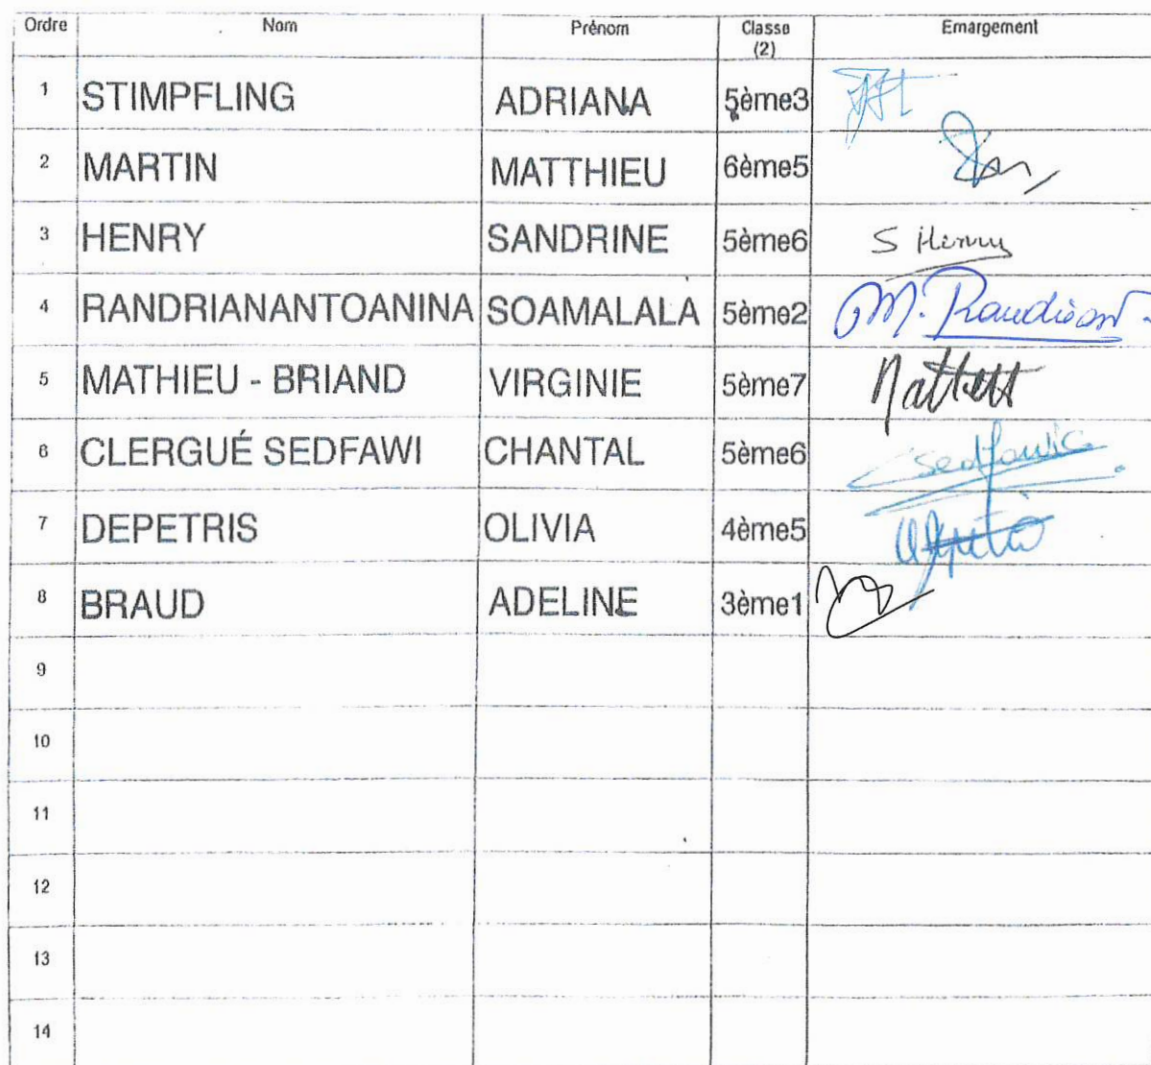 Ordre Nom Prénom Classe (2) Emargement
1 STIMPFLING ADRIANA 5ème3
2 MARTIN MATTHIEU 6ème5
3 HENRY SANDRINE 5ème6 S Henry
4 RANDRIANANTOANINA SOAMALALA 5ème2
5 MATHIEU - BRIAND VIRGINIE 5ème7
6 CLERGUÉ SEDFAWI CHANTAL 5ème6
7 DEPETRIS OLIVIA 4ème5
8 BRAUD ADELINE 3ème1
9
10
11
12
13
14